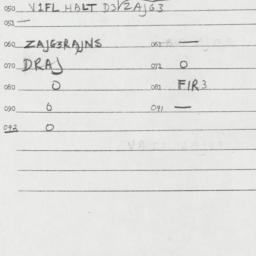 050 V1FL HALT D3V2AJG3
053 —
060 ZAJG3RAJNS 063 —
070 DRAJ 072 0
080 0 081 FIR3
090 0 091 —
093 0